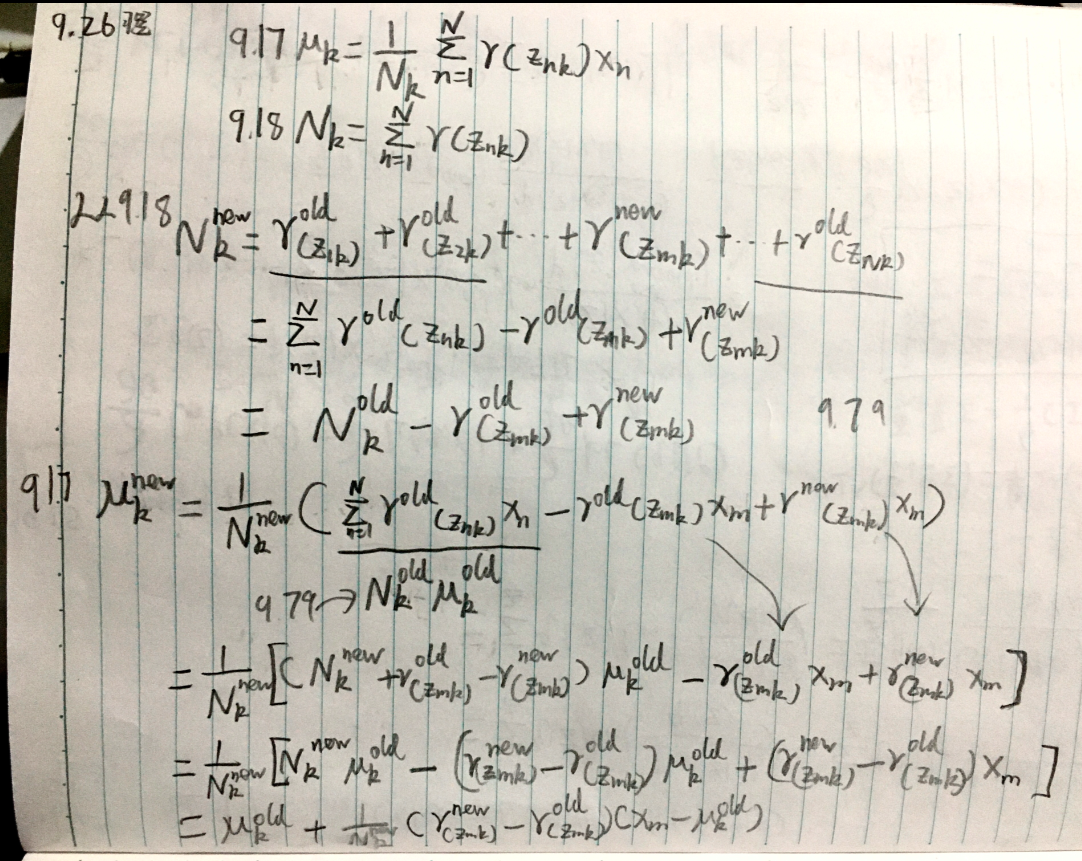 9.26 理
9.17 μ_k = 1/N_k Σ_{n=1}^{N} γ(z_{nk}) x_n
9.18 N_k = Σ_{n=1}^{N} γ(z_{nk})
9.18 N_k^{new} = γ^{old}(z_{1k}) + γ^{old}(z_{2k}) + ⋯ + γ^{new}(z_{mk}) + ⋯ + γ^{old}(z_{Nk})
= Σ_{n=1}^{N} γ^{old}(z_{nk}) − γ^{old}(z_{mk}) + γ^{new}(z_{mk})
= N_k^{old} − γ^{old}(z_{mk}) + γ^{new}(z_{mk}) 9.79
9.17 μ_k^{new} = 1/N_k^{new} ( Σ_{n=1}^{N} γ^{old}(z_{nk}) x_n − γ^{old}(z_{mk}) x_m + γ^{new}(z_{mk}) x_m )
9.79 → N_k^{old} μ_k^{old}
= 1/N_k^{new} [ ( N_k^{new} + γ^{old}(z_{mk}) − γ^{new}(z_{mk}) ) μ_k^{old} − γ^{old}(z_{mk}) x_m + γ^{new}(z_{mk}) x_m ]
= 1/N_k^{new} [ N_k^{new} μ_k^{old} − ( γ^{new}(z_{mk}) − γ^{old}(z_{mk}) ) μ_k^{old} + ( γ^{new}(z_{mk}) − γ^{old}(z_{mk}) ) x_m ]
= μ_k^{old} + 1/N_k ( γ^{new}(z_{mk}) − γ^{old}(z_{mk}) ) ( x_m − μ_k^{old} )